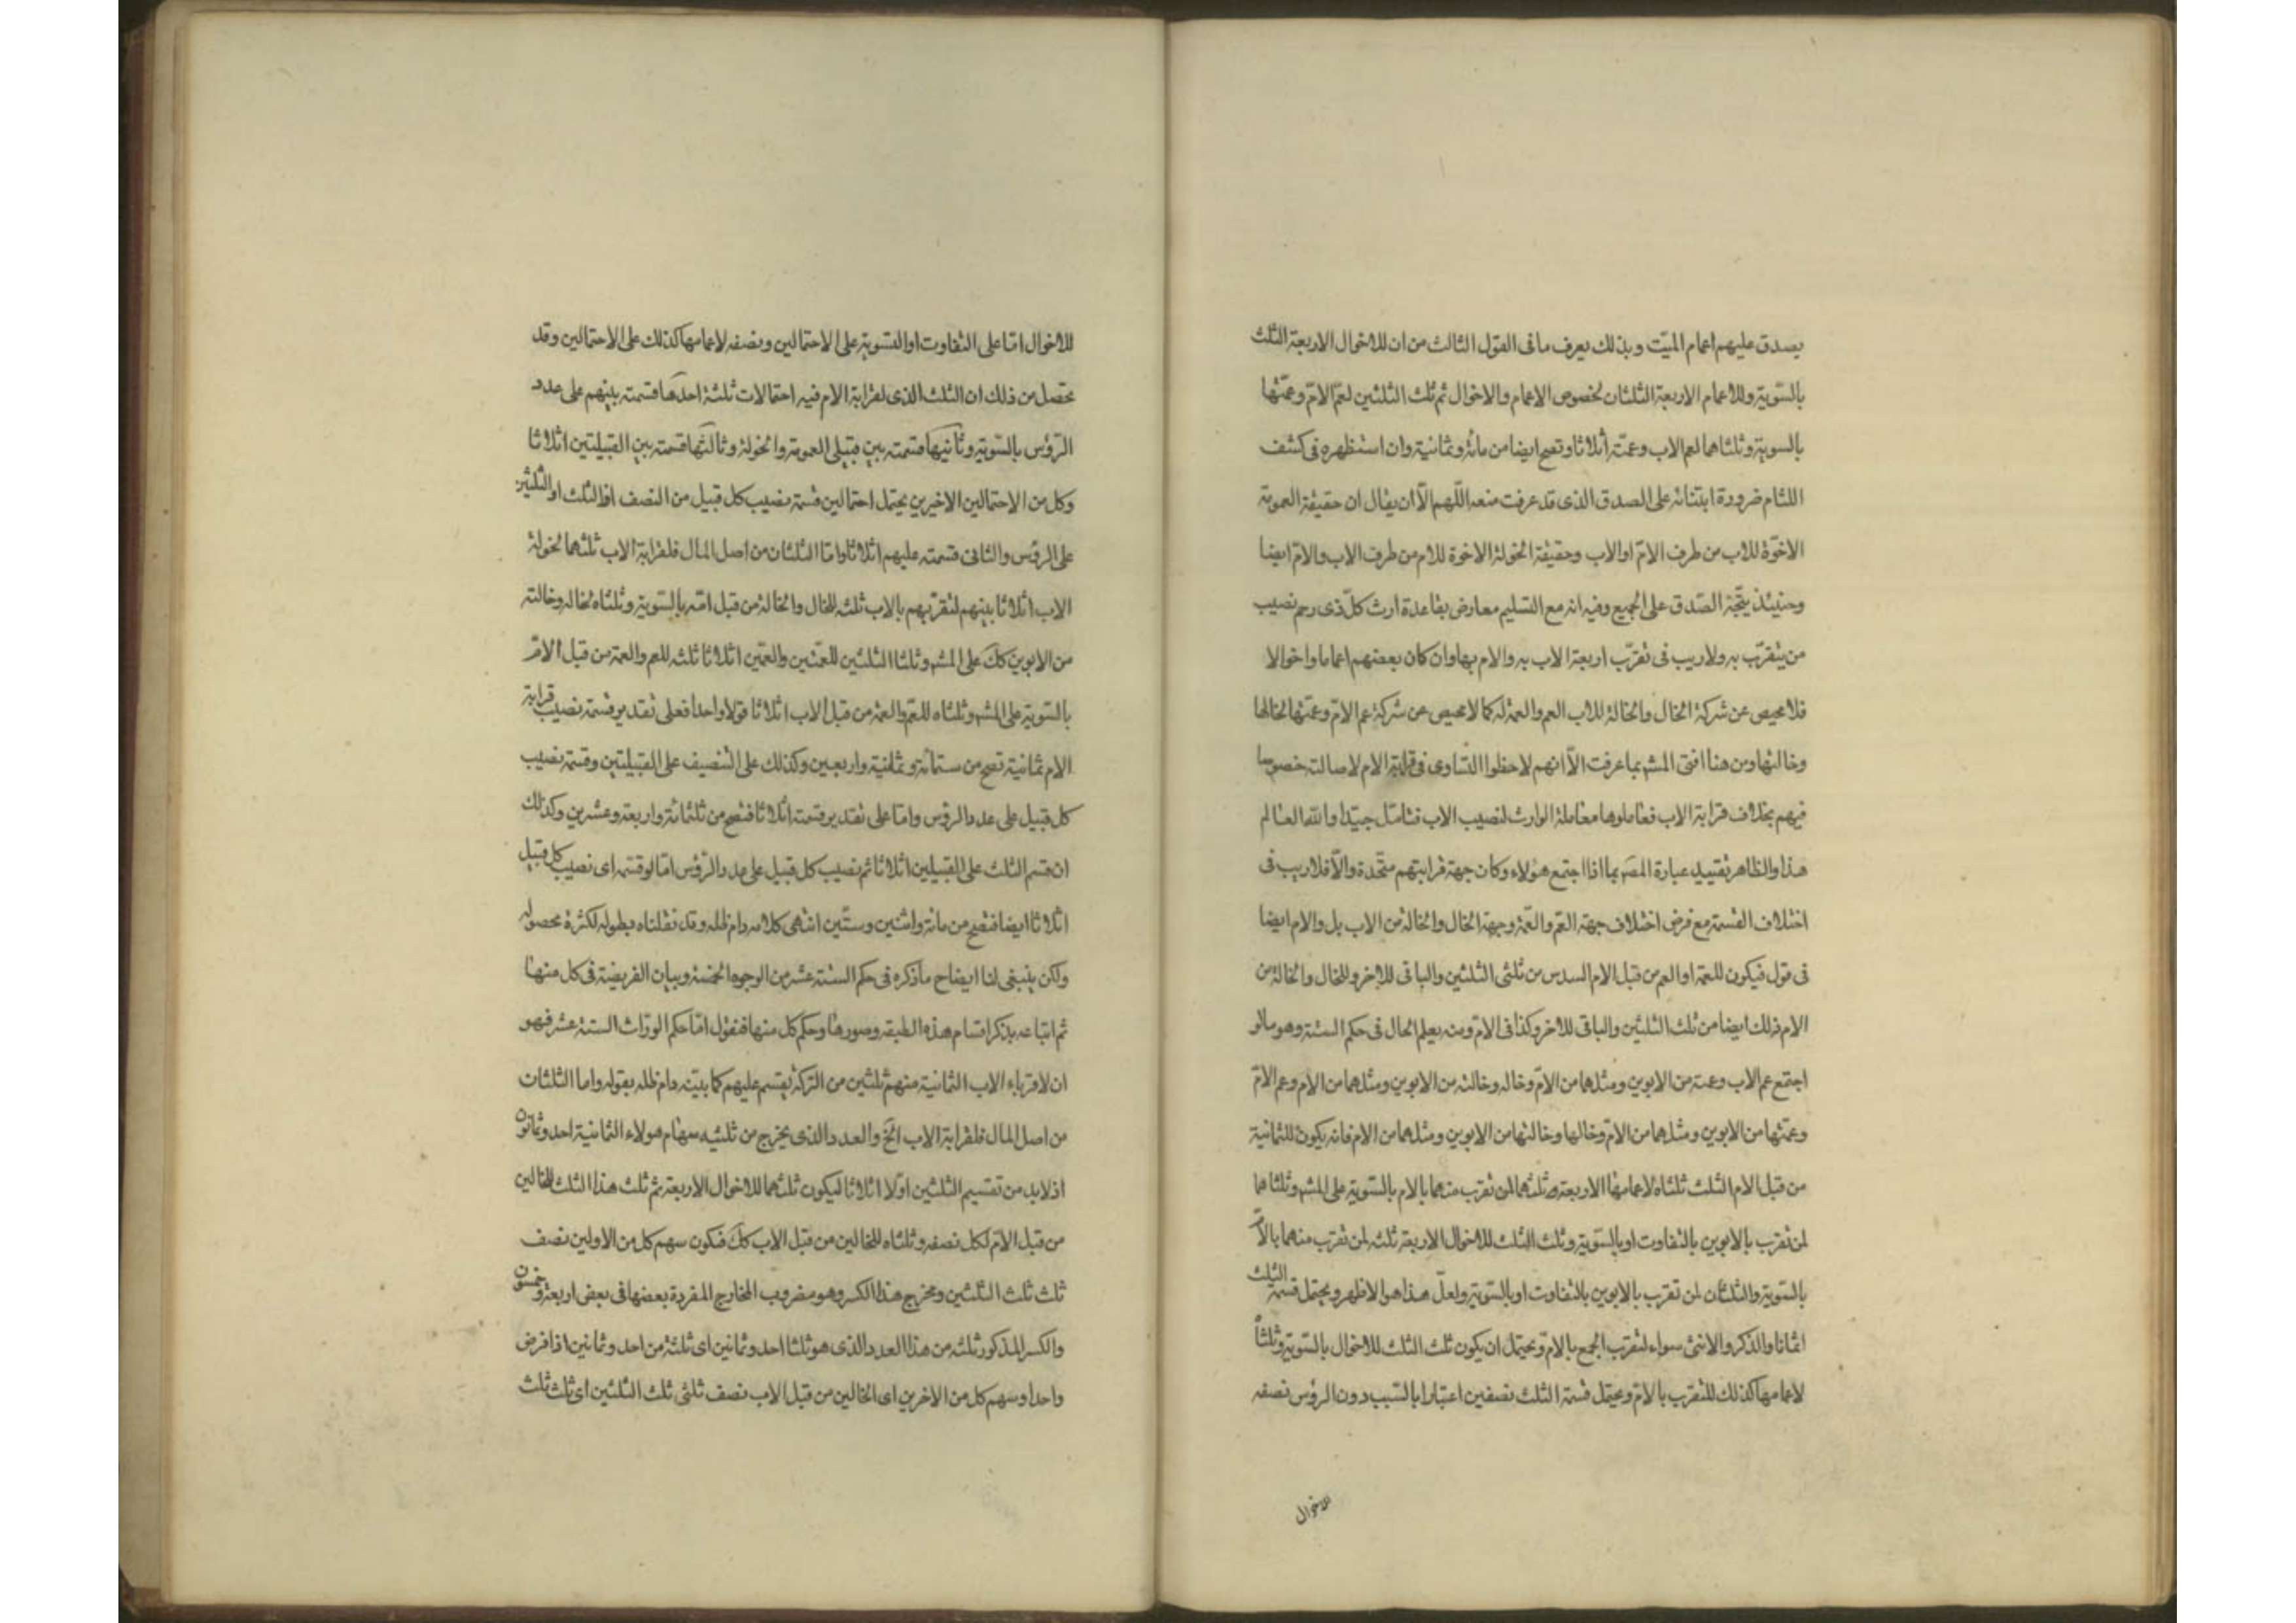 يصدق عليهم اعمام الميّت وبذلك يعرف ما فى القول الثالث من ان للاخوال الاربعة الثلث
بالسّوية وللاعمام الاربعة الثلثان بخصوص الاعمام والاخوال ثم ثلث الثلثين لعمّ الامّ وعمّتها
بالسوية وثلثاهما لعم الاب وعمته اثلاثا وتصح ايضا من مائة وثمانية وان استظهره فى كشف
اللثام ضرورة ابتنائه على الصدق الذى قد عرفت منعه اللّهم الّا ان يقال ان حقيقة العمومة
الاخوّة للاب من طرف الامّ او الاب وحقيقة الخولة الاخوة للام من طرف الاب والامّ ايضا
وحينئذ يتّجه الصّدق على الجميع وفيه انه مع التسليم معارض بقاعدة ارث كلّ ذى رحم نصيب
من يتقرّب به ولا ريب فى تقرّب اربعة الاب به والام بها وان كان بعضهم اعماما واخوالا
فلا محيص عن شركة الخال والخالة للاب العم والعمة له كما لا محيص عن شركة عم الامّ وعمّتها لخالها
وخالتها ومن هنا افتى المشه بما عرفت الّا انهم لاحظوا التساوى فى قرابة الام لاصالته خصوصا
فيهم بخلاف قرابة الاب فعاملوها معاملة الوارث لنصيب الاب فتامّل جيّدا والله العالم
هذا والظاهر تقييد عبارة المصَ بما اذا اجتمع هؤلاء وكان جهة قرابتهم متّحدة والّا فلا ريب فى
اختلاف القسمة مع فرض اختلاف جهة العّم والعّمة وجهة الخال والخالة من الاب بل والام ايضا
فى قول فيكون للعمة او العم من قبل الام السدس من ثلثى الثلثين والباقى للاخر وللخال والخالة من
الام ذلك ايضا من ثلث الثلثين والباقى للاخر وكذا فى الامّ ومنه يعلم الحال فى حكم الستة وهو ما لو
اجتمع عم الاب وعمته من الابوين ومثلهما من الامّ وخاله وخالته من الابوين ومثلهما من الام وعم الامّ
وعمّتها من الابوين ومثلهما من الامّ وخالها وخالتها من الابوين ومثلهما من الام فانه يكون للثمانية
من قبل الام الثلث ثلثاه لاعمامها الاربعة وثلثهما لمن تقرب منهما بالام بالسّوية على المشه وثلثاهما
لمن تقرب بالابوين بالتفاوت او بالسّوية وثلث الثلث للاخوال الاربعة ثلثه لمن تقرب منهما بالامّ
بالسّوية والثلثان لمن تقرب بالابوين بالتفاوت او بالسّوية ولعلّ هذا هو الاظهر ويحتمل قسمة الثلث
اثمانا والذكر والانثى سواء لتقرب الجمع بالامّ ويحتمل ان يكون ثلث الثلث للاخوال بالسّوية وثلثاً
لاعمامها كذلك للتقرب بالامّ ويحتمل قسمة الثلث نصفين اعتبارا بالسّبب دون الرؤس نصفه
للاخوال
للاخوال امّا على التفاوت او التسوية على الاحتمالين ونصفه لاعمامها كذلك على الاحتمالين وقد
تحصل من ذلك ان الثلث الذى لقرابة الام فيه احتمالات ثلثة احدها قسمته بينهم على عدد
الرّؤس بالسّوية وثانيها قسمته بين قبيلى العمومة والخولة وثالثها قسمته بين القبيلتين اثلاثا
وكل من الاحتمالين الاخيرين يحتمل احتمالين قسمة نصيب كل قبيل من النصف او الثلث او الثلثين
على الرؤس والثانى قسمته عليهم اثلاثا وامّا الثلثان من اصل المال فلقرابة الاب ثلثهما لخولة
الاب اثلاثا بينهم لتقرّبهم بالاب ثلثه للخال والخالة من قبل امّه بالسّوية وثلثاه لخاله وخالته
من الابوين كك على المشه وثلثا الثلثين للعمّتين والعمّين اثلاثا ثلثه للعم والعمة من قبل الامّ
بالسّوية على المشه وثلثاه للعمّ والعمة من قبل الاب اثلاثا قولا واحدا فعلى تقدير قسمة نصيب قرابة
الام ثمانية تصح من ستمائة وثمانية واربعين وكذلك على التنصيف على القبيلتين وقسمة نصيب
كل قبيل على عدد الرؤس وامّا على تقدير قسمته اثلاثا فتصح من ثلثمائة واربعة وعشرين وكذلك
ان قسم الثلث على القبيلين اثلاثا ثم نصيب كل قبيل على عدد الرّؤس امّا لو قسمه اى نصيب كل قبيل
اثلاثا ايضا فتصّح من مائة واثنين وستّين انتهى كلامه دام ظله وقد نقلناه بطوله لكثرة محصوله
ولكن ينبغى لنا ايضاح ما ذكره فى حكم الستة عشر من الوجوه الخمسة وبيان الفريضة فى كل منها
ثم اتباعه بذكر اقسام هذه الطبقه وصورها وحكم كل منها فنقول امّا حكم الورّاث الستة عشر فهو
ان لاقرباء الاب الثمانية منهم ثلثين من التركة يقسم عليهم كما بيّنه دام ظله بقوله واما الثلثان
من اصل المال فلقرابة الاب الخ والعدد الذى يخرج من ثلثيه سهام هولاء الثمانية احد وثمانون
اذ لا بد من تقسيم الثلثين اوّلا اثلاثا ليكون ثلثهما للاخوال الاربعة ثم ثلث هذا الثلث للخالين
من قبل الامّ لكل نصفه وثلثاه للخالين من قبل الاب كك فتكون سهم كل من الاولين نصف
ثلث ثلث الثلثين ومخرج هذا الكسر وهو مضروب المخارج المفردة بعضها فى بعض اربعة وخمسون
والكسر المذكور ثلثه من هذا العدد الذى هو ثلثا احد وثمانين اى ثلثة من احد وثمانين اذا فرض
واحدا وسهم كل من الاخرين اى الخالين من قبل الاب نصف ثلثى ثلث الثلثين اى ثلث ثلث